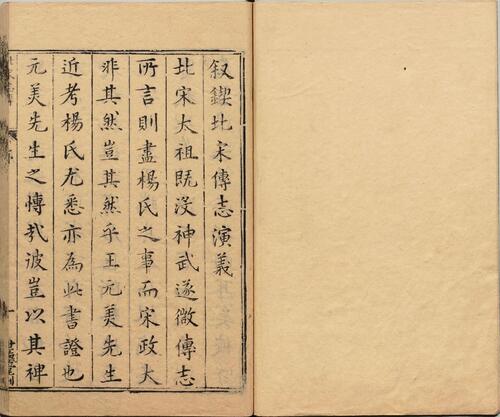 叙鍥北宋傳志演義
北宋太祖既沒神武遂微傳志
所言則盡楊氏之事而宋政大
非其然豈其然乎王元美先生
近考楊氏尤悉亦為此書證也
元美先生之博哉彼豈以其稗